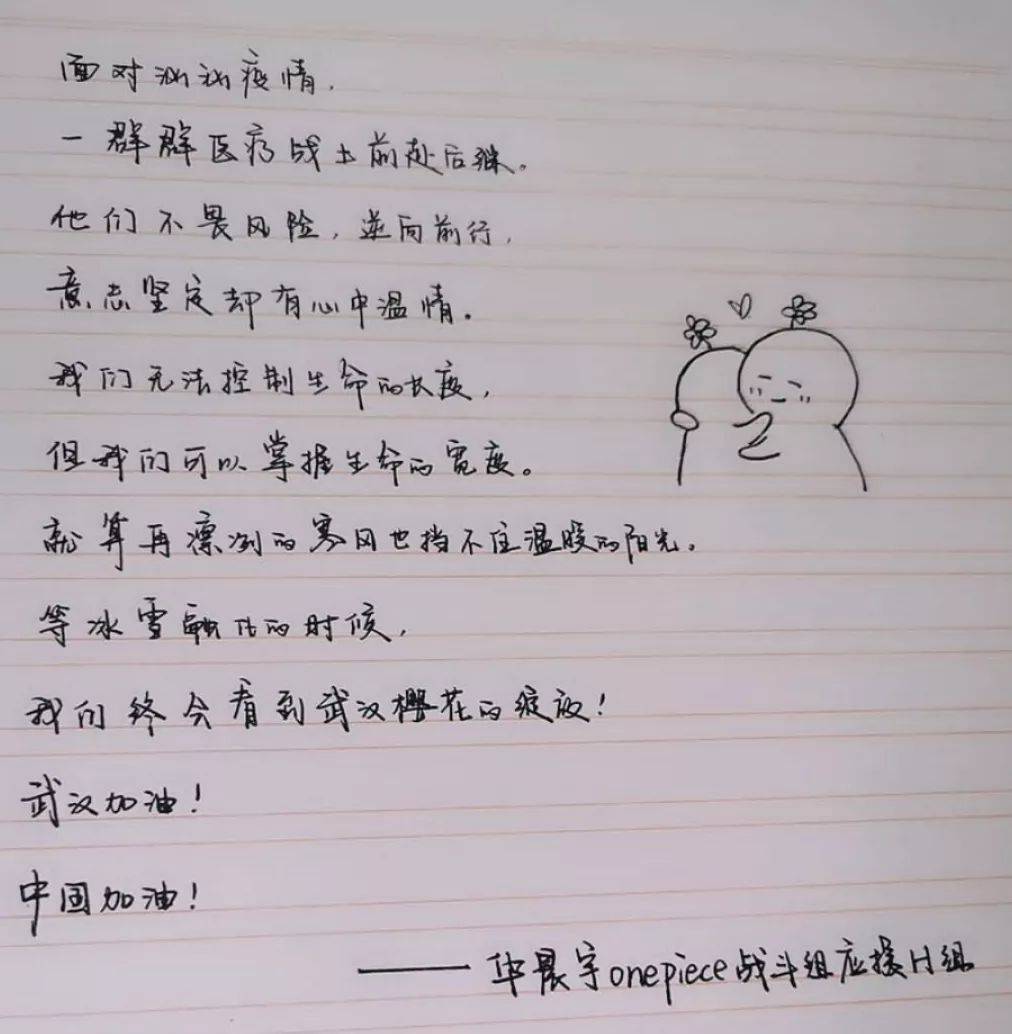 面对汹汹疫情,
一群群医疗战士前赴后继。
他们不畏风险,逆向前行,
意志坚定却有心中温情。
我们无法控制生命的长度,
但我们可以掌握生命的宽度。
就算再凛冽的寒风也挡不住温暖的阳光。
等冰雪融化的时候,
我们终会看到武汉樱花的绽放!
武汉加油!
中国加油!
——华晨宇onepiece战斗组应援H组